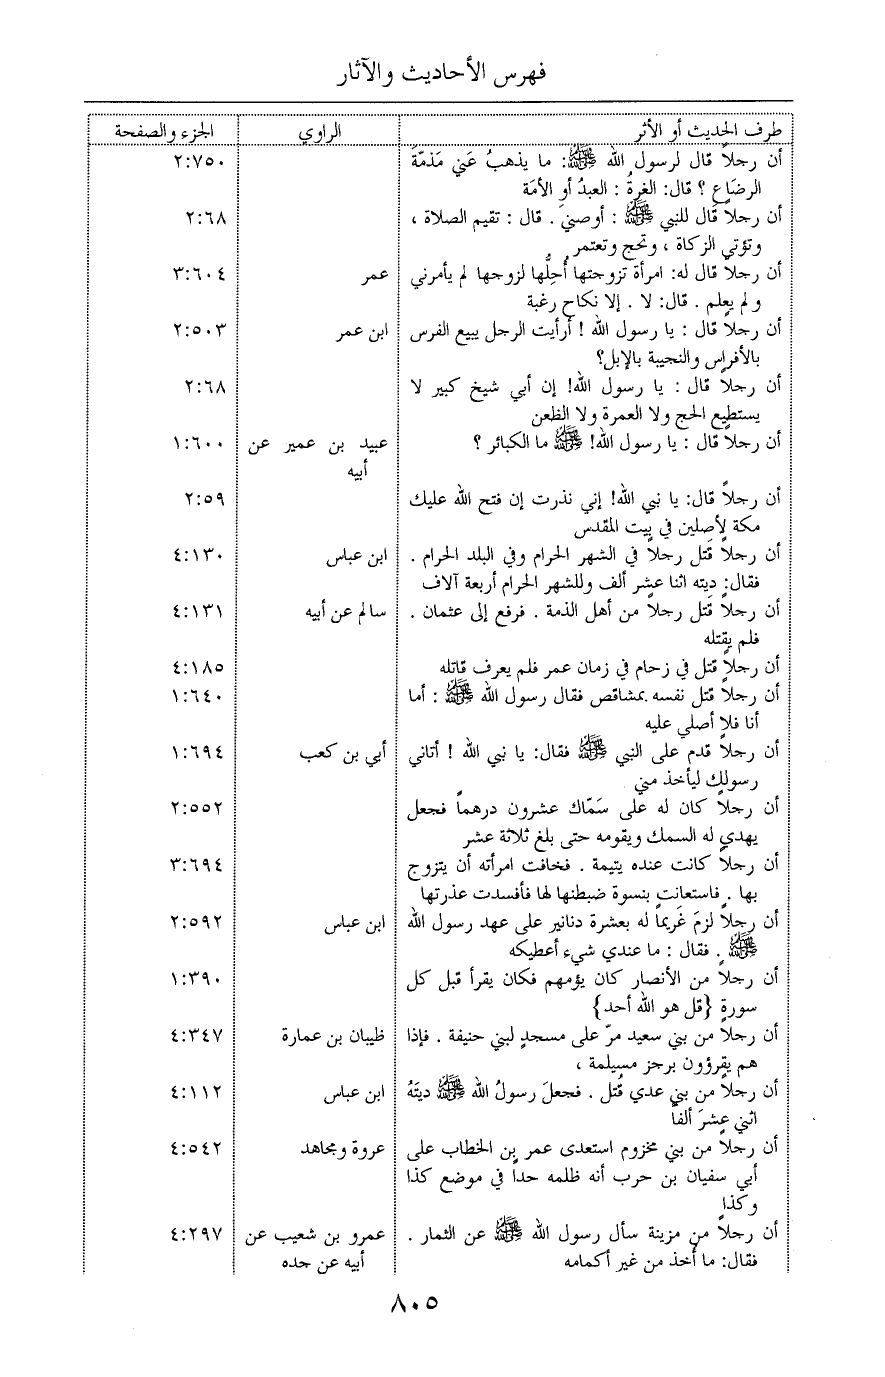 فهرس الأحاديث والآثار
طرف الحديث أو الأثر الراوي الجزء والصفحة
أن رجلاً قال لرسول الله ﷺ: ما يذهبُ عَني مَذمّةَ ٢:٧٥٠
الرضَاعِ ؟ قال: الغرةُ : العبدُ أو الأمَة
أن رجلاً قال للنبي ﷺ : أوصني . قال : تقيم الصلاة ، ٢:٦٨
وتؤتي الزكاة ، وتحج وتعتمر
أن رجلاً قال له: امرأة تزوجتها أُحِلُّها لزوجها لم يأمرني عمر ٣:٦٠٤
ولم يعلم . قال: لا . إلا نكاح رغبة
أن رجلاً قال : يا رسول الله ! أرأيت الرجل يبيع الفرس ابن عمر ٢:٥٠٣
بالأفراس والنجيبة بالإبل؟
أن رجلاً قال : يا رسول الله! إن أبي شيخ كبير لا ٢:٦٨
يستطيع الحج ولا العمرة ولا الظعن
أن رجلاً قال : يا رسول الله! ﷺ ما الكبائر ؟ عبيد بن عمير عن ١:٦٠٠
أبيه
أن رجلاً قال: يا نبي الله! إني نذرت إن فتح الله عليك ٢:٥٩
مكة لأصلين في بيت المقدس
أن رجلاً قَتل رجلاً في الشهر الحرام وفي البلد الحرام . ابن عباس ٤:١٣٠
فقال: ديته اثنا عشر ألف وللشهر الحرام أربعة آلاف
أن رجلاً قَتل رجلاً من أهل الذمة . فرفع إلى عثمان . سالم عن أبيه ٤:١٣١
فلم يقتله
أن رجلاً قتل في زحام في زمان عمر فلم يعرف قاتله ٤:١٨٥
أن رجلاً قتل نفسه بمشاقص فقال رسول الله ﷺ : أما ١:٦٤٠
أنا فلا أصلي عليه
أن رجلاً قدم على النبي ﷺ فقال: يا نبي الله ! أتاني أبي بن كعب ١:٦٩٤
رسولك ليأخذ مني
أن رجلاً كان له على سَمّاك عشرون درهماً فجعل ٢:٥٥٢
يهدي له السمك ويقومه حتى بلغ ثلاثة عشر
أن رجلاً كانت عنده يتيمة . فخافت امرأته أن يتزوج ٣:٦٩٤
بها . فاستعانت بنسوة ضبطنها لها فأفسدت عذرتها
أن رجلاً لزمَ غَريماً له بعشرة دنانير على عهد رسول الله ابن عباس ٢:٥٩٢
ﷺ . فقال : ما عندي شيء أعطيكه
أن رجلاً من الأنصار كان يؤمهم فكان يقرأ قبل كل ١:٣٩٠
سورة {قل هو الله أحد}
أن رجلاً من بني سعيد مرّ على مسجدٍ لبني حنيفة . فإذا ظيبان بن عمارة ٤:٣٤٧
هم يقرؤون برجز مسيلمة ،
أن رجلاً من بني عدي قُتل . فجعلَ رسولُ الله ﷺ ديتَهُ ابن عباس ٤:١١٢
اثني عشرَ ألفاً
أن رجلاً من بني مخزوم استعدى عمر بن الخطاب على عروة ومجاهد ٤:٥٤٢
أبي سفيان بن حرب أنه ظلمه حداً في موضع كذا
وكذا
أن رجلاً من مزينة سأل رسول الله ﷺ عن الثمار . عمرو بن شعيب عن ٤:٢٩٧
فقال: ما أُخذ من غير أكمامه أبيه عن جده
٨٠٥